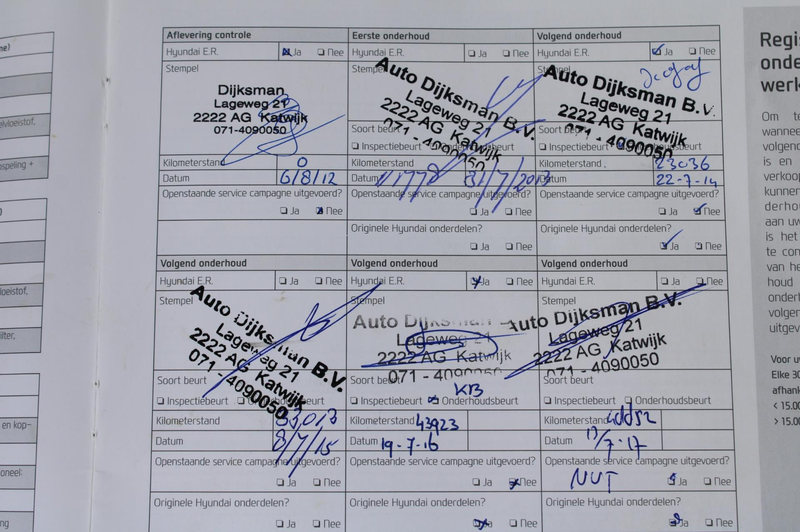 Aflevering controle
Hyundai E.R. Ja Nee
Stempel
Dijksman
Lageweg 21
2222 AG Katwijk
071-4090050
Kilometerstand 0
Datum 6/8/12
Openstaande service campagne uitgevoerd?
Ja Nee
Eerste onderhoud
Hyundai E.R. Ja Nee
Stempel
Auto Dijksman B.V.
Lageweg 21
2222 AG Katwijk
071 - 4090050
Soort beurt
Inspectiebeurt Onderhoudsbeurt
Kilometerstand
Datum
Openstaande service campagne uitgevoerd?
Ja Nee
Originele Hyundai onderdelen?
Ja Nee
Volgend onderhoud
Hyundai E.R. Ja Nee
Stempel
Auto Dijksman B.V.
Lageweg 21
2222 AG Katwijk
071 - 4090050
Soort beurt
Inspectiebeurt
Kilometerstand 23036
Datum 22-7-14
Openstaande service campagne uitgevoerd?
Ja Nee
Originele Hyundai onderdelen?
Ja Nee
Volgend onderhoud
Hyundai E.R. Ja Nee
Stempel
Auto Dijksman B.V.
Lageweg 21
2222 AG Katwijk
071 - 4090050
Soort beurt
Inspectiebeurt Onderhoudsbeurt
Kilometerstand 33013
Datum 8/7/15
Openstaande service campagne uitgevoerd?
Ja Nee
Originele Hyundai onderdelen?
Ja Nee
Volgend onderhoud
Hyundai E.R. Ja Nee
Stempel
Auto Dijksman
Lageweg 21
2222 AG Katwijk
071 - 4090050
Soort beurt KB
Inspectiebeurt Onderhoudsbeurt
Kilometerstand 43923
Datum 19-7-16
Openstaande service campagne uitgevoerd?
Ja Nee
Originele Hyundai onderdelen?
Ja Nee
Volgend onderhoud
Hyundai E.R. Ja Nee
Stempel
Auto Dijksman B.V.
Lageweg 21
2222 AG Katwijk
071 - 4090050
Soort beurt
Inspectiebeurt Onderhoudsbeurt
Kilometerstand
Datum 13/7-17
Openstaande service campagne uitgevoerd?
NVT Ja Nee
Originele Hyundai onderdelen?
Ja Nee
Regis
onde
werk
Om te
wanneer
volgend
is en
verkoop
kunnen
derhou
aan uw
is het
te con
van he
houd
onderh
volgen
uitgev
Voor uw
Elke 30
afhank
< 15.00
> 15.00